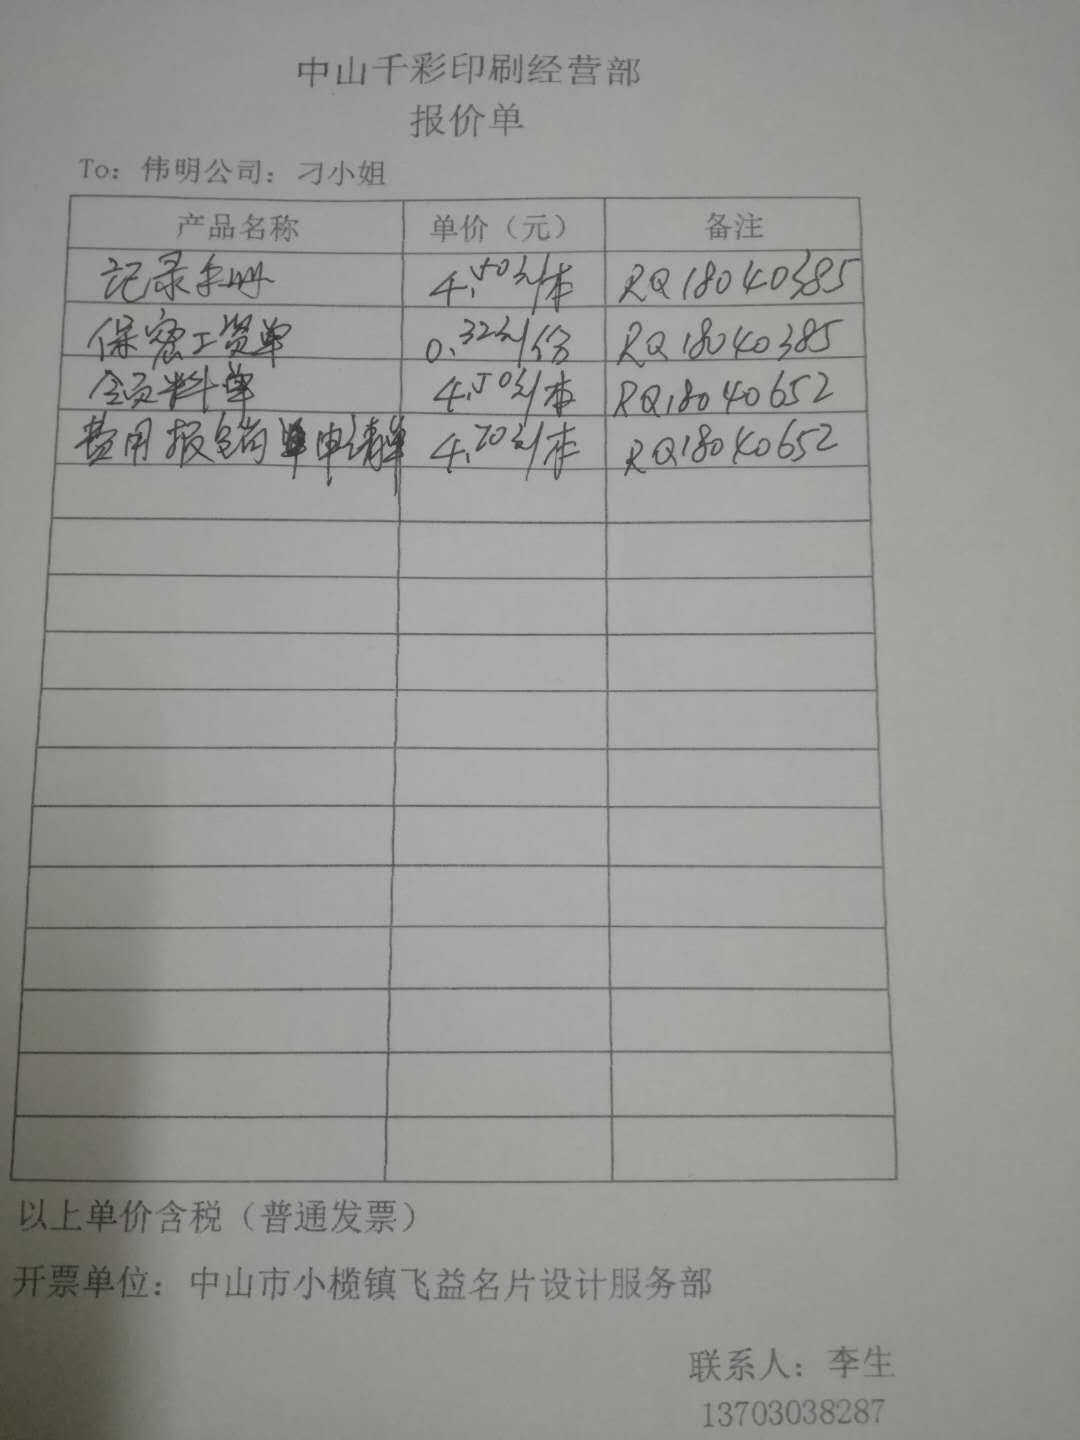 中山千彩印刷经营部
报价单
To: 伟明公司: 刁小姐
产品名称 单价（元） 备注
记录手册 4.50元/本 RQ18040385
保密工资单 0.32元/份 RQ18040385
料单 4.50元/本 RQ18040652
费用报销单申请单 4.70元/本 RQ18040652
以上单价含税（普通发票）
开票单位: 中山市小榄镇飞益名片设计服务部
联系人: 李生
13703038287